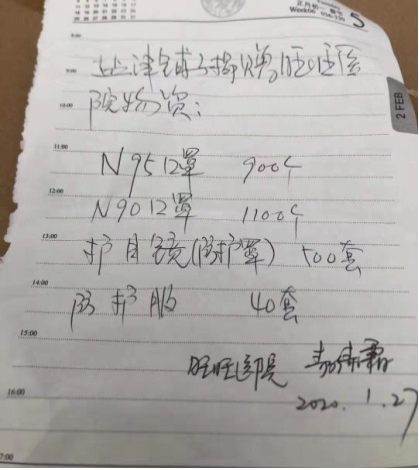 5
2 FEB
9:00
盐津铺子捐赠旺旺医
10:00
院物资:
11:00
N95口罩 900个
12:00
N90口罩 1100个
13:00
护目镜(防护罩) 500套
14:00
防护服 40套
15:00
旺旺医院
2020.1.27
16:00